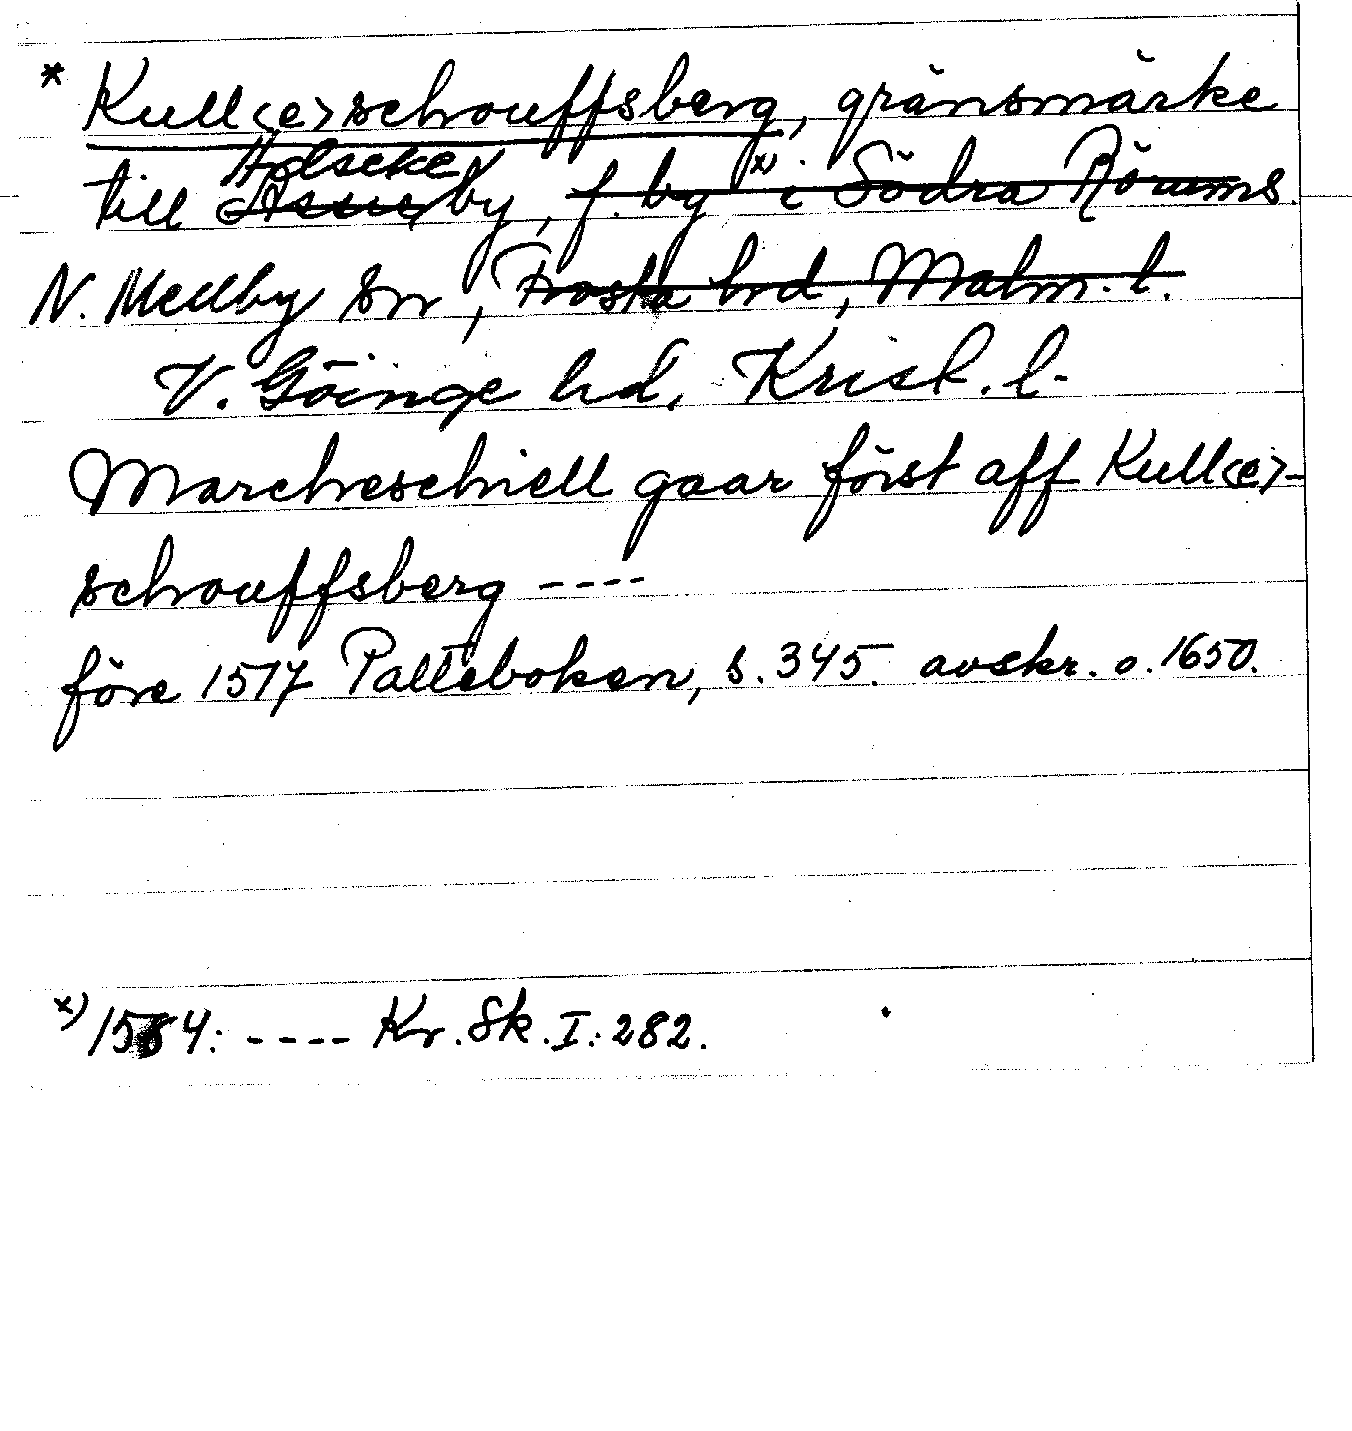 * Kull<e>schouffsberg, gränsmärke
Holseke
till by, f. by x) i Södra Rörums
N. Mellby sn, Frosta hrd, Malm. l.
V. Göinge hd, Krist. l.
Marcheschiell gaar först aff Kull<e>-
schouffsberg ----
före 1517 Palteboken, s. 345. avskr. o. 1650.
x) 1584: ---- Kr. Sk. I: 282.